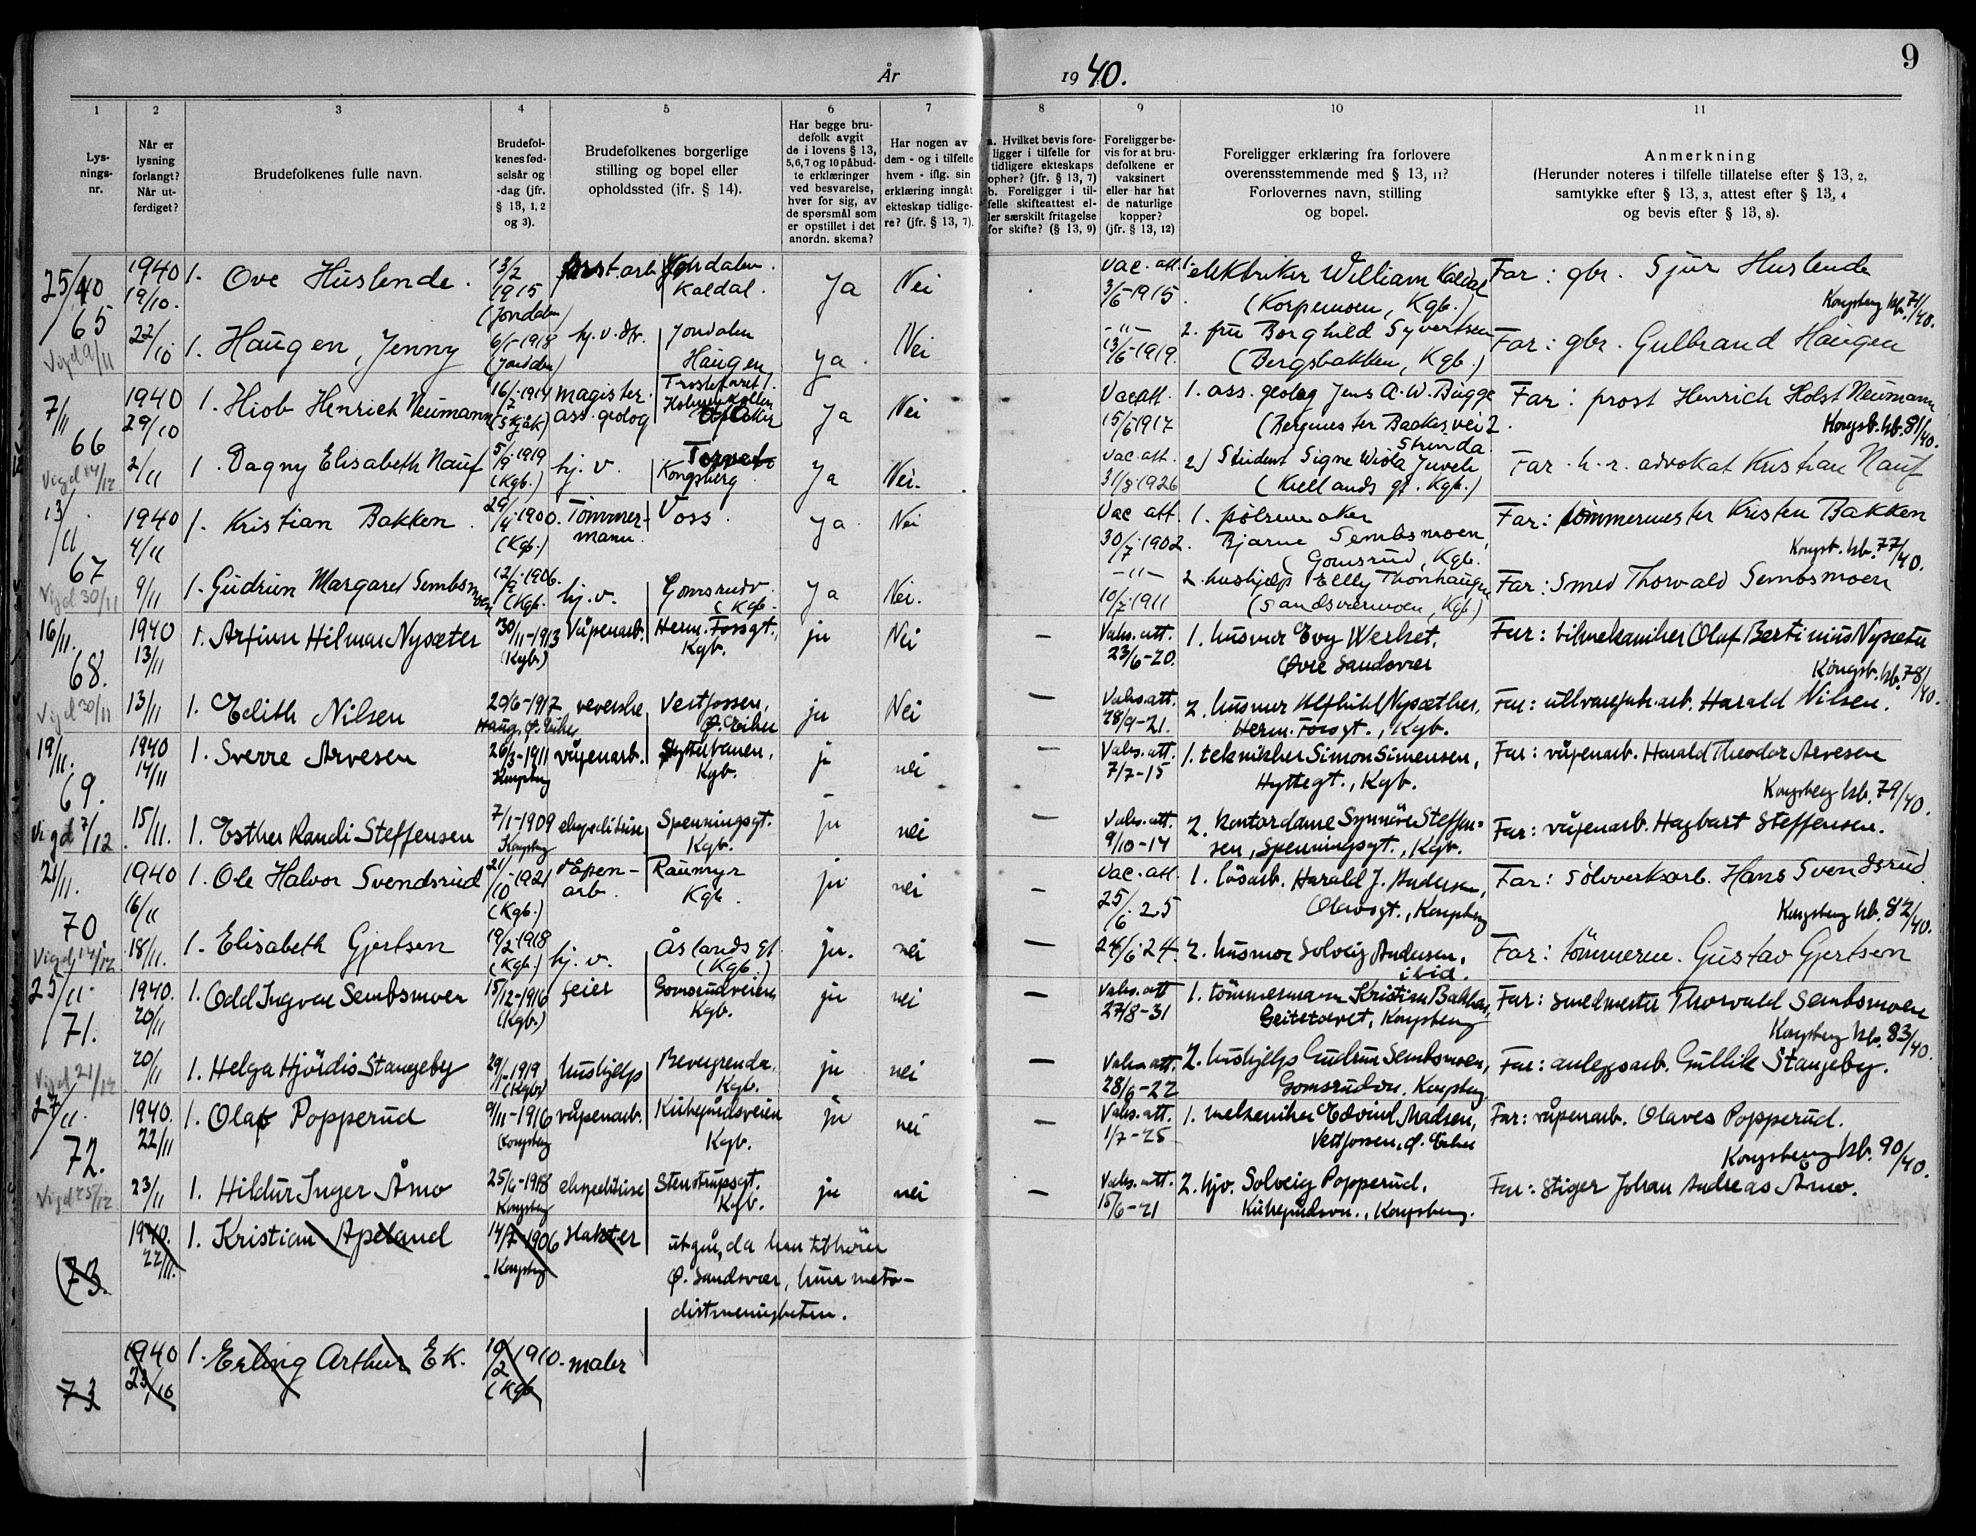 År 1940.
9
1 2 3 4 5 6 7 8 9 10 11
Lys-
nings-
nr.
Når er
lysning
forlangt?
Når ut-
ferdiget?
Brudefolkenes fulle navn.
Brudefol-
kenes fød-
selsår og
-dag (jfr.
§ 13, 1, 2
og 3).
Brudefolkenes borgerlige
stilling og bopel eller
opholdssted (jfr. § 14).
Har begge bru-
defolk avgit
de i lovens § 13,
5, 6, 7 og 10 påbud-
te erklæringer
ved besvarelse,
hver for sig, av
de spørsmål som
er opstillet i det
anordn. skema?
Har nogen av
dem - og i tilfelle
hvem - iflg. sin
erklæring inngått
ekteskap tidlige-
re? (jfr. § 13, 7).
a. Hvilket bevis fore-
ligger i tilfelle for
tidligere ekteskaps
opher? (jfr. § 13, 7)
b. Foreligger i til-
felle skifteattest el-
ler særskilt fritagelse
for skifte? (§ 13, 9)
Foreligger be-
vis for at bru-
defolkene er
vaksinert
eller har hat
de naturlige
kopper?
(jfr. § 13, 12)
Foreligger erklæring fra forlovere
overensstemmende med § 13, 11?
Forlovernes navn, stilling
og bopel.
Anmerkning
(Herunder noteres i tilfelle tillatelse efter § 13, 2,
samtykke efter § 13, 3, attest efter § 13, 4
og bevis efter § 13, 8).
25/40
65
Vigd 9/11
1940
19/10.
1. Ove Huslende.
13/2
1915
(Jondalen)
Jondalen.
Kaldal.
Ja
Nei
Vac. att.
3/6-1915
1. elektriker William Kaldal
(Korpemoen, Kgb.)
Far: gbr. Sjur Huslende
Kongsberg kb. 71/40.
22/10
1. Haugen, Jenny
6/1-1918
(Jondalen)
hj. v. dtr.
Jondalen
Haugen
Ja.
Nei
-"-
13/6-1919.
2. fru Borghild Syvertsen
(Bergsbakken, Kgb.)
Far: gbr. Gulbrand Haugen
7/11
66
Vigd 14/12
1940
29/10
1. Hiob Henrich Neumann
16/7-1914
(Skjåk)
magister.
ass. geolog
Trosteparet 1.
Holmenkollen
Ja
Nei
Vac att.
15/6 1917
1. ass. geolog Jens A. W. Bugge
(Bergmester Backes vei 2
Strinda
Far: prost Henrich Holst Neumann
Kongsb. kb. 81/40.
2/11
1. Dagny Elisabeth Nauf
5/9 1919
(Kgb.)
hj. v.
Kongsberg
Ja
Nei.
Vac. att.
31/8-1926
2) Student Signe Wiola Juveli
(Kiellands gt. Kgb.)
Far. h. r. advokat Kristian Nauf
13/11
67
Vigd 30/11
1940
4/11
1. Kristian Bakken.
29/4-1900.
(Kgb.)
Tømmer-
mann.
Voss.
Ja
Nei
Vac att.
30/7-1902.
1. pølsemaker
Bjarne Sembsmoen,
(Gomsrud, Kgb.
Far: tømmermester Kristen Bakken
Kongsb. kb. 77/40.
9/11
1. Gudrun Margaret Sembsmoen
12/9-1906.
(Kgb.
hj. v.
Gomsrudv.
(Kgb.
Ja
Nei.
-"-
10/7-1911
2. hushjelp Elly Thonhaugen
(Sandsværmoen, Kgb.)
Far: Smed Thorvald Sembsmoen
16/11.
68.
Vigd 30/11
1940
13/11
1. Arfinn Hilmar Nysæter
30/11-1913
(Kgb.)
Våpenarb.
Herm. Fossgt.,
Kgb.
ja
Nei
—
Vaks. att.
23/6-20.
1. husmor Evy Werket,
Øvre Sandsvær
Far: bilmekaniker Olaf Bertinius Nysæter
Kongsb. kb. 78/40.
13/11
1. Edith Nilsen
20/6-1917
Haug, Ø. Eiker
veverske
Vestfossen,
Ø. Eiker
ja
Nei
—
Vaks. att.
28/9-21.
2. husmor Alfhild Nysæther,
Herm. Fossgt., Kgb.
Far: ullvarefabr.arb. Harald Nilsen.
19/11.
69.
Vigd 7/12
1940
14/11
1. Sverre Arvesen
26/3-1911
Kongsberg
våpenarb.
Skyttebanen,
Kgb.
ja
nei
—
Vaks. att.
7/7-15
1. tekniker Simon Simensen,
Hyttegt., Kgb.
Far: våpenarb. Harald Theodor Arvesen
Kongsberg kb. 79/40.
15/11.
1. Esther Randi Steffensen
7/1-1909
Kongsberg
ekspeditrise
Spenningsgt.
Kgb.
ja
nei
—
Vaks. att.
9/10-14
2. kontordame Synnöve Steffen=
sen, Spenningsgt., Kgb.
Far: våpenarb. Hagbart Steffensen.
21/11.
70
Vigd. 14/12
1940
16/11
1. Ole Halvor Svendsrud
21/10-1921
(Kgb.)
våpen-
arb.
Raumyr
Kgb.
ja
nei
—
Vac. att.
25/6. 25
1. løsarb. Harald J. Andersen,
Olavsgt., Kongsberg
Far: Sølvverksarb. Hans Svendsrud.
Kongsberg kb. 82/40.
18/11.
1. Elisabeth Gjertsen
19/2-1918
(Kgb.)
hj. v.
Åslands gt.
(Kgb.)
ja.
nei
—
24/6-24
2. husmor Solveig Andersen,
ibid.
Far: tømmerm. Gustav Gjertsen
25/11.
71.
Vigd 21/12
1940.
20/11
1. Odd Ingvar Sembsmoen
15/12-1916
(Kgb.)
feier
Gomsrudveien
Kgb.
ja
nei
—
Vaks. att
27/8-31
1. tømmermann Kristian Bakken,
Geitetoevet, Kongsberg
Far: smedmester Thorvald Sembsmoen
Kongsberg kb. 83/40.
20/11
1. Helga Hjördis Stangeby
29/1-1919
(Kgb.)
hushjelp
Bevergrenda,
Kgb.
ja
nei
—
Vaks. att.
28/6-22
2. hushjelp Gudrun Sembsmoen,
Gomsrudvn., Kongsberg.
Far: anleggsarb. Gullik Stangeby.
27/11.
72.
Vigd 25/12
1940.
22/11
1. Olaf Popperud
9/11-1916
Kongsberg
våpenarb.
Kirkegårdsveien
Kgb.
ja
nei
—
Vaks. att.
1/7-25
1. mekaniker Edvind Madsen,
Vestfossen, Ø. Eiker
Far: våpenarb. Olaves Popperud.
Kongsberg kb. 90/40.
23/11
1. Hildur Inger Åmo
25/6-1918
Kongsberg
ekspeditrise
Stenstrupsgt.
Kgb.
ja
nei
—
Vaks. att.
15/6-21
2. hjv. Solveig Popperud,
Kirkegårdsvn., Kongsberg.
Far: Stiger Johan Andreas Åmo.
(73.
1940.
22/11.
1. Kristian Apeland
14/7-1906
Kongsberg
Hakter
utgår, da han tilhører
Ø. Sandsvær, hun meto-
distmenigheten.
73
1940
23/10
1. Erling Arthur Ek.
10/2 1910.
(Kgb.
maler